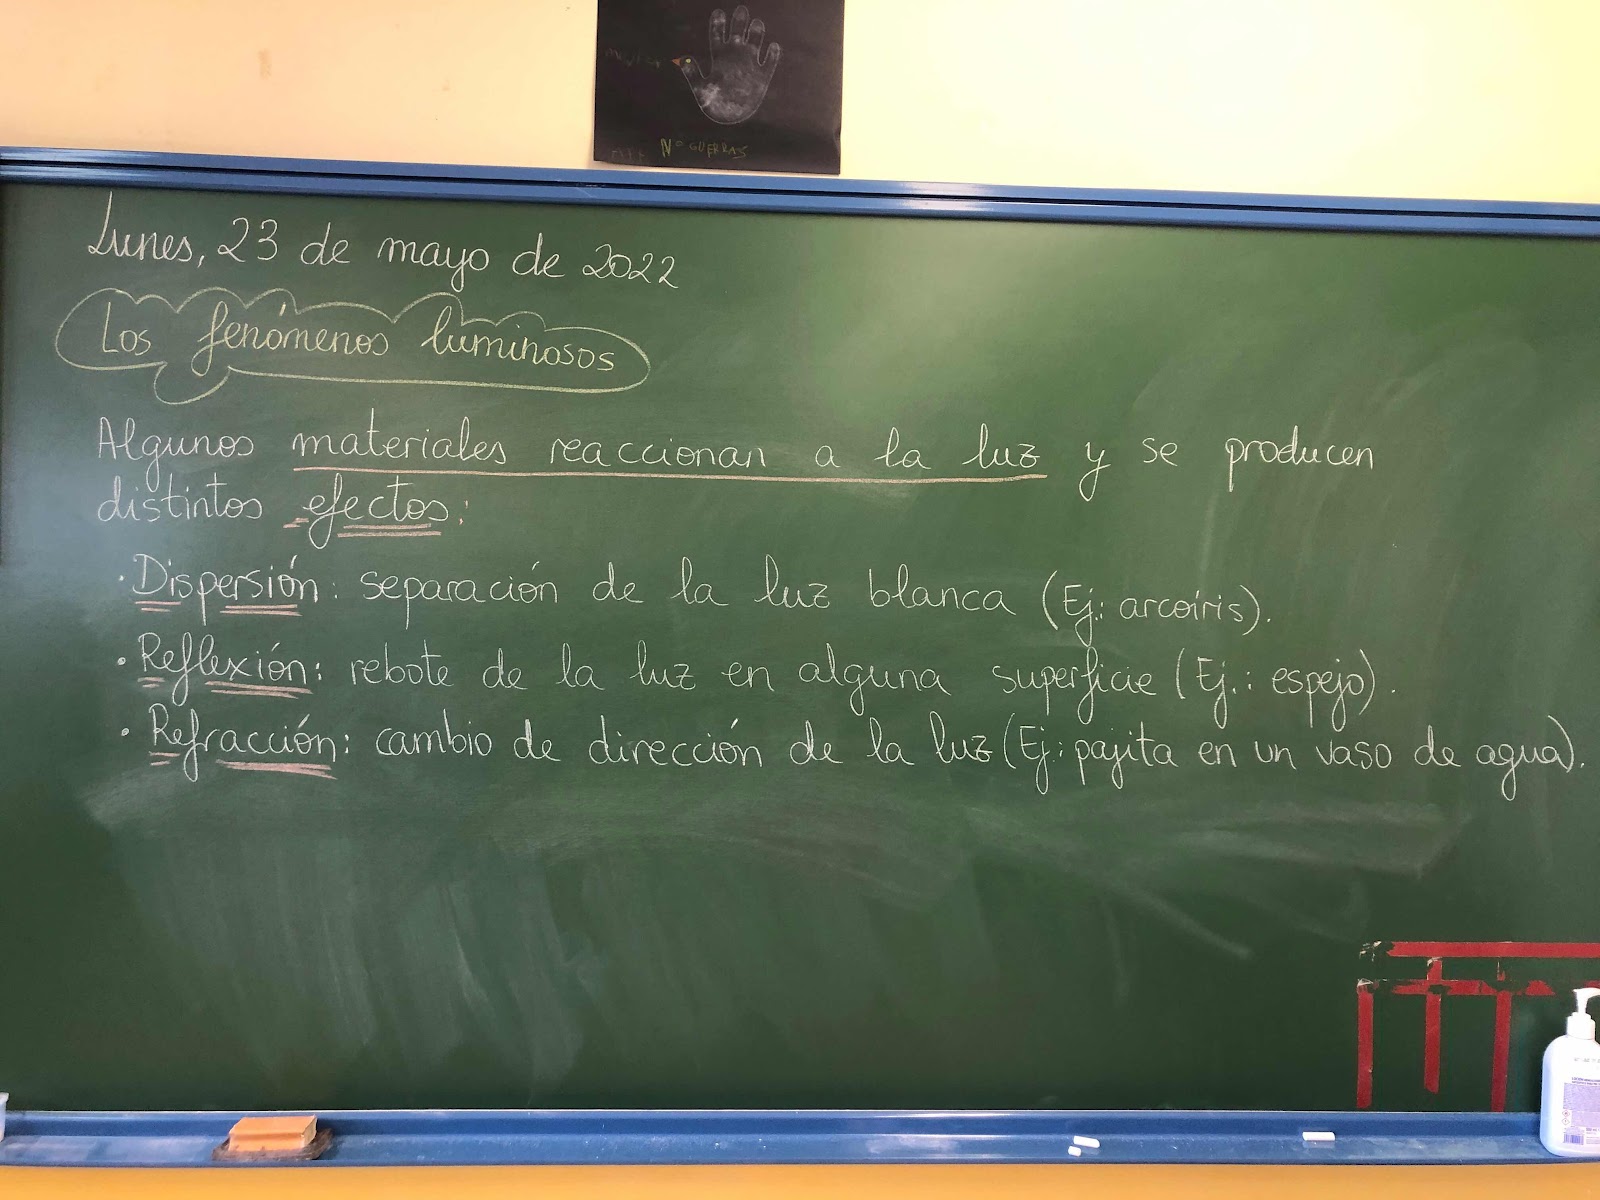 Nº GUERRAS
Lunes, 23 de mayo de 2022
Los fenómenos luminosos
Algunos materiales reaccionan a la luz y se producen
distintos efectos:
· Dispersión: separación de la luz blanca (Ej.: arcoíris).
· Reflexión: rebote de la luz en alguna superficie (Ej.: espejo).
· Refracción: cambio de dirección de la luz (Ej.: pajita en un vaso de agua).